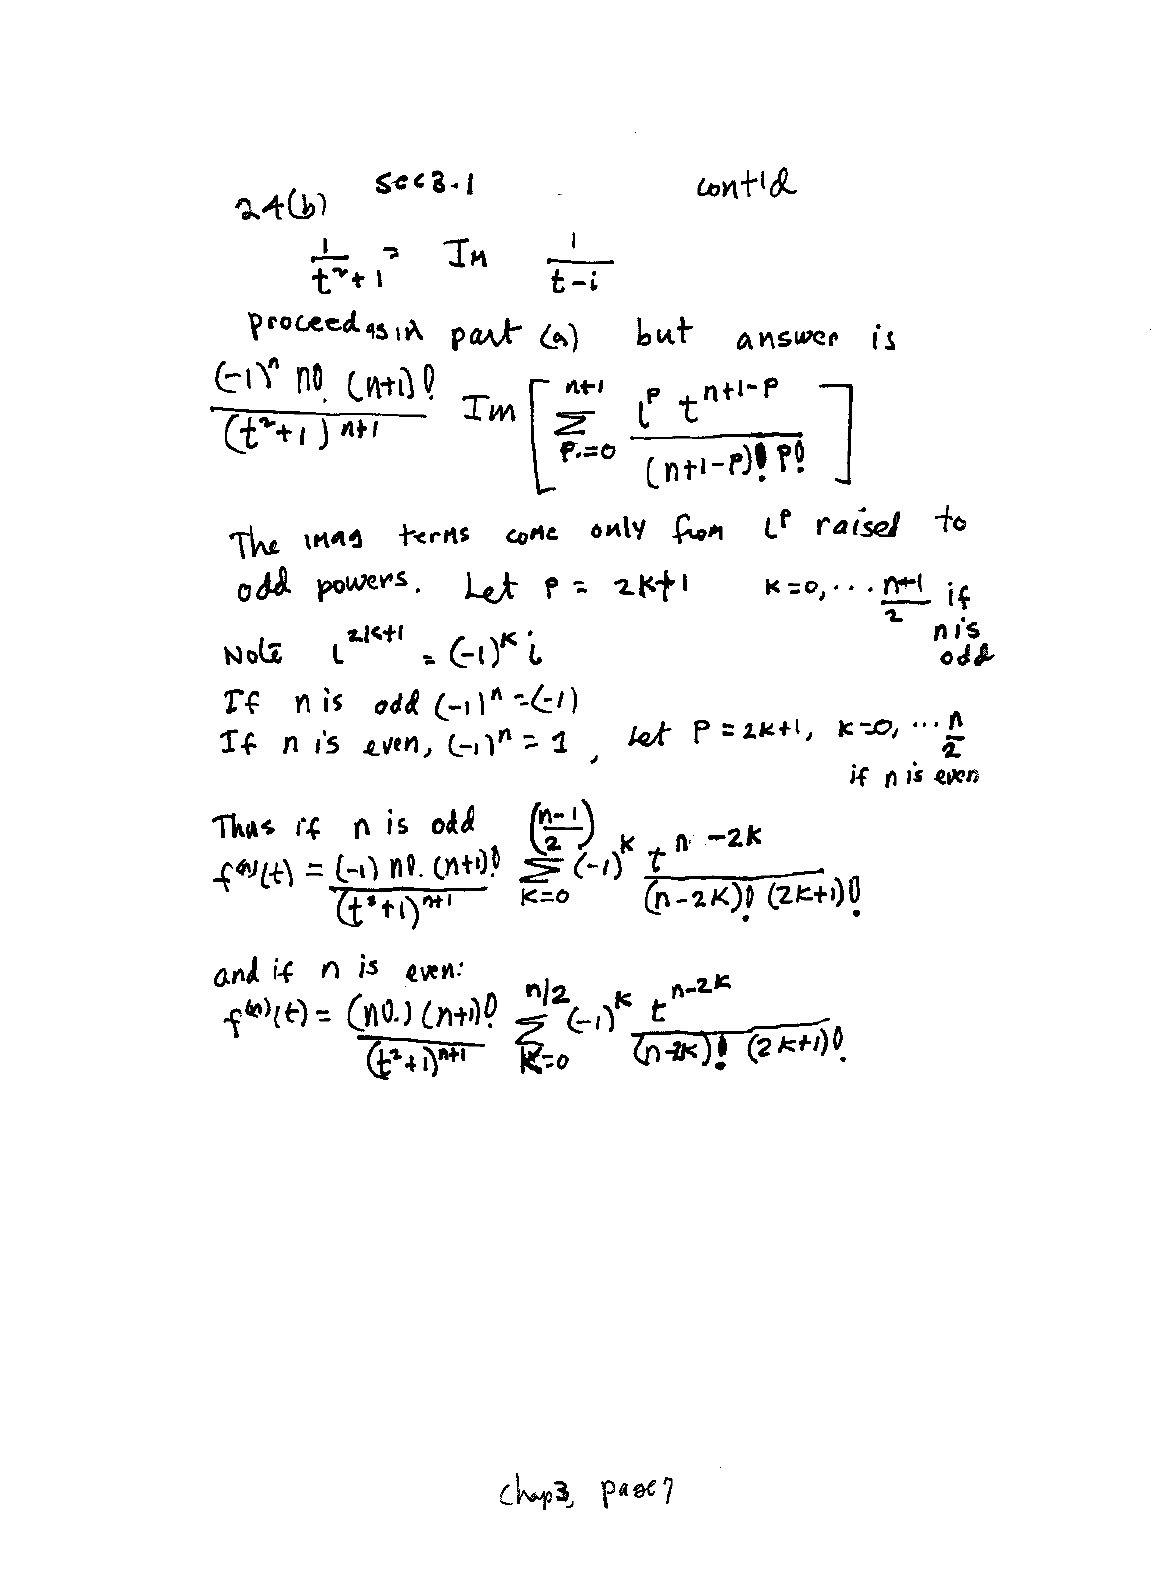 sec 3.1 cont'd
24(b)
1/(t²+1) = Im 1/(t-i)
proceed as in part (a) but answer is
(-1)ⁿ n! (n+1)! / (t²+1)ⁿ⁺¹ Im [ Σ_{p=0}^{n+1} i^p t^{n+1-p} / ((n+1-p)! p!) ]
The imag terms come only from i^p raised to
odd powers. Let p = 2k+1 k=0, ... (n+1)/2 if n is odd
Note i^{2k+1} = (-1)^k i
If n is odd (-1)ⁿ = (-1)
If n is even, (-1)ⁿ = 1, Let p = 2k+1, k=0, ... n/2
if n is even
Thus if n is odd
f^{(n)}(t) = (-1) n! (n+1)! / (t²+1)^{n+1} Σ_{k=0}^{(n-1)/2} (-1)^k t^{n-2k} / ((n-2k)! (2k+1)!)
and if n is even:
f^{(n)}(t) = (n!) (n+1)! / (t²+1)^{n+1} Σ_{k=0}^{n/2} (-1)^k t^{n-2k} / ((n-2k)! (2k+1)!)
chap 3, page 7